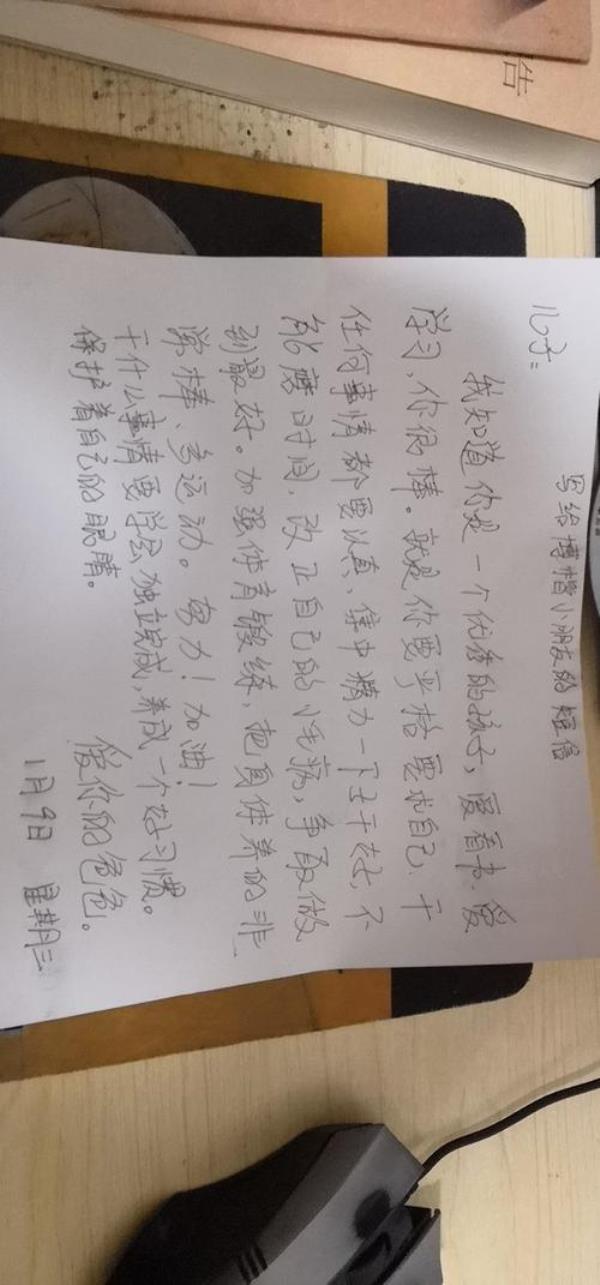 告
写给博小朋友的短信
儿子：
我知道你是一个优秀的孩子，爱看书、爱
学习，你很棒。就是你要严格要求自己、干
任何事情都要认真、集中精力一下子干好，不
能磨时间，改正自己的小毛病，争取做
到最好。加强体育锻练，把身体养的非
常棒、多运动。努力！加油！
干什么事情要学会独立完成，养成一个好习惯。
保护着自己的眼睛。
爱你的爸爸。
1月9日 星期三